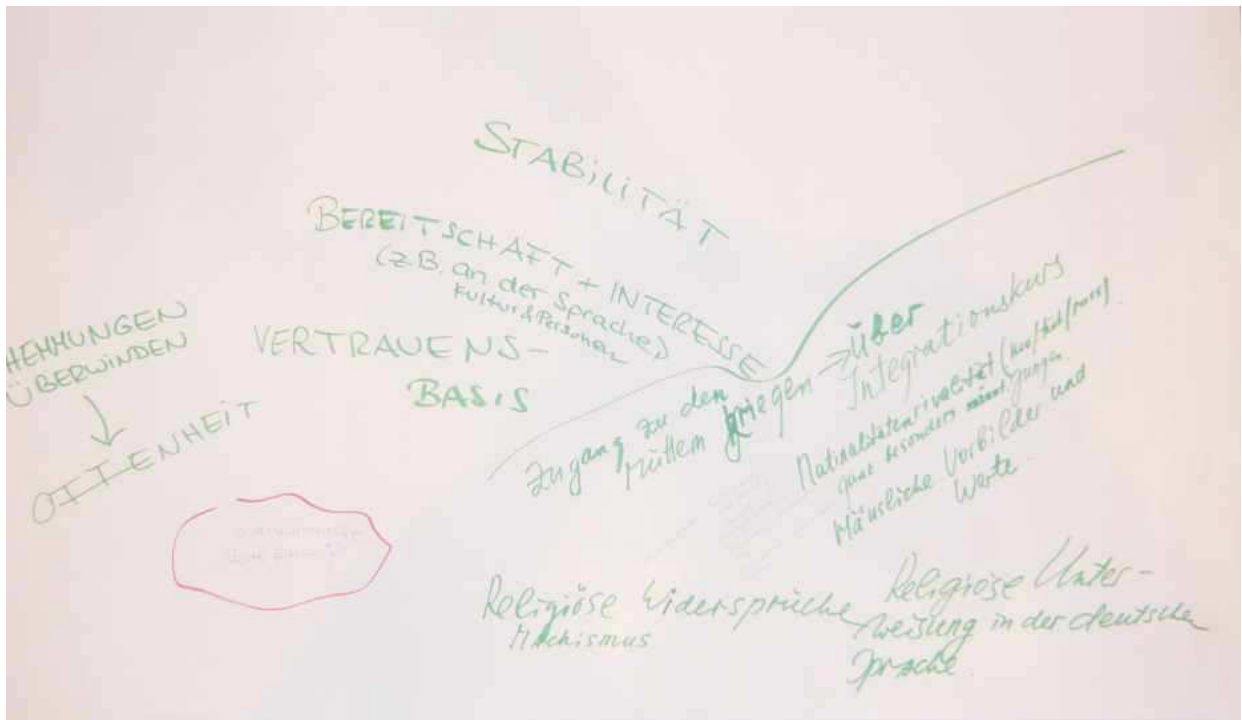 STABILITÄT
BEREITSCHAFT + INTERESSE
(z.B. an der Sprache,
Kultur & Personen)
HEMMUNGEN
ÜBERWINDEN
OFFENHEIT
VERTRAUENS-
BASIS
Zugang zu den
Müttern kriegen
Über
Integrationskurs
Nationalitätenrivalität
ganz besonders Jungen
Häusliche Vorbilder und
Werte
Religiöse Widersprüche
Machismus
Religiöse Unter-
weisung in der deutsche
Sprache.